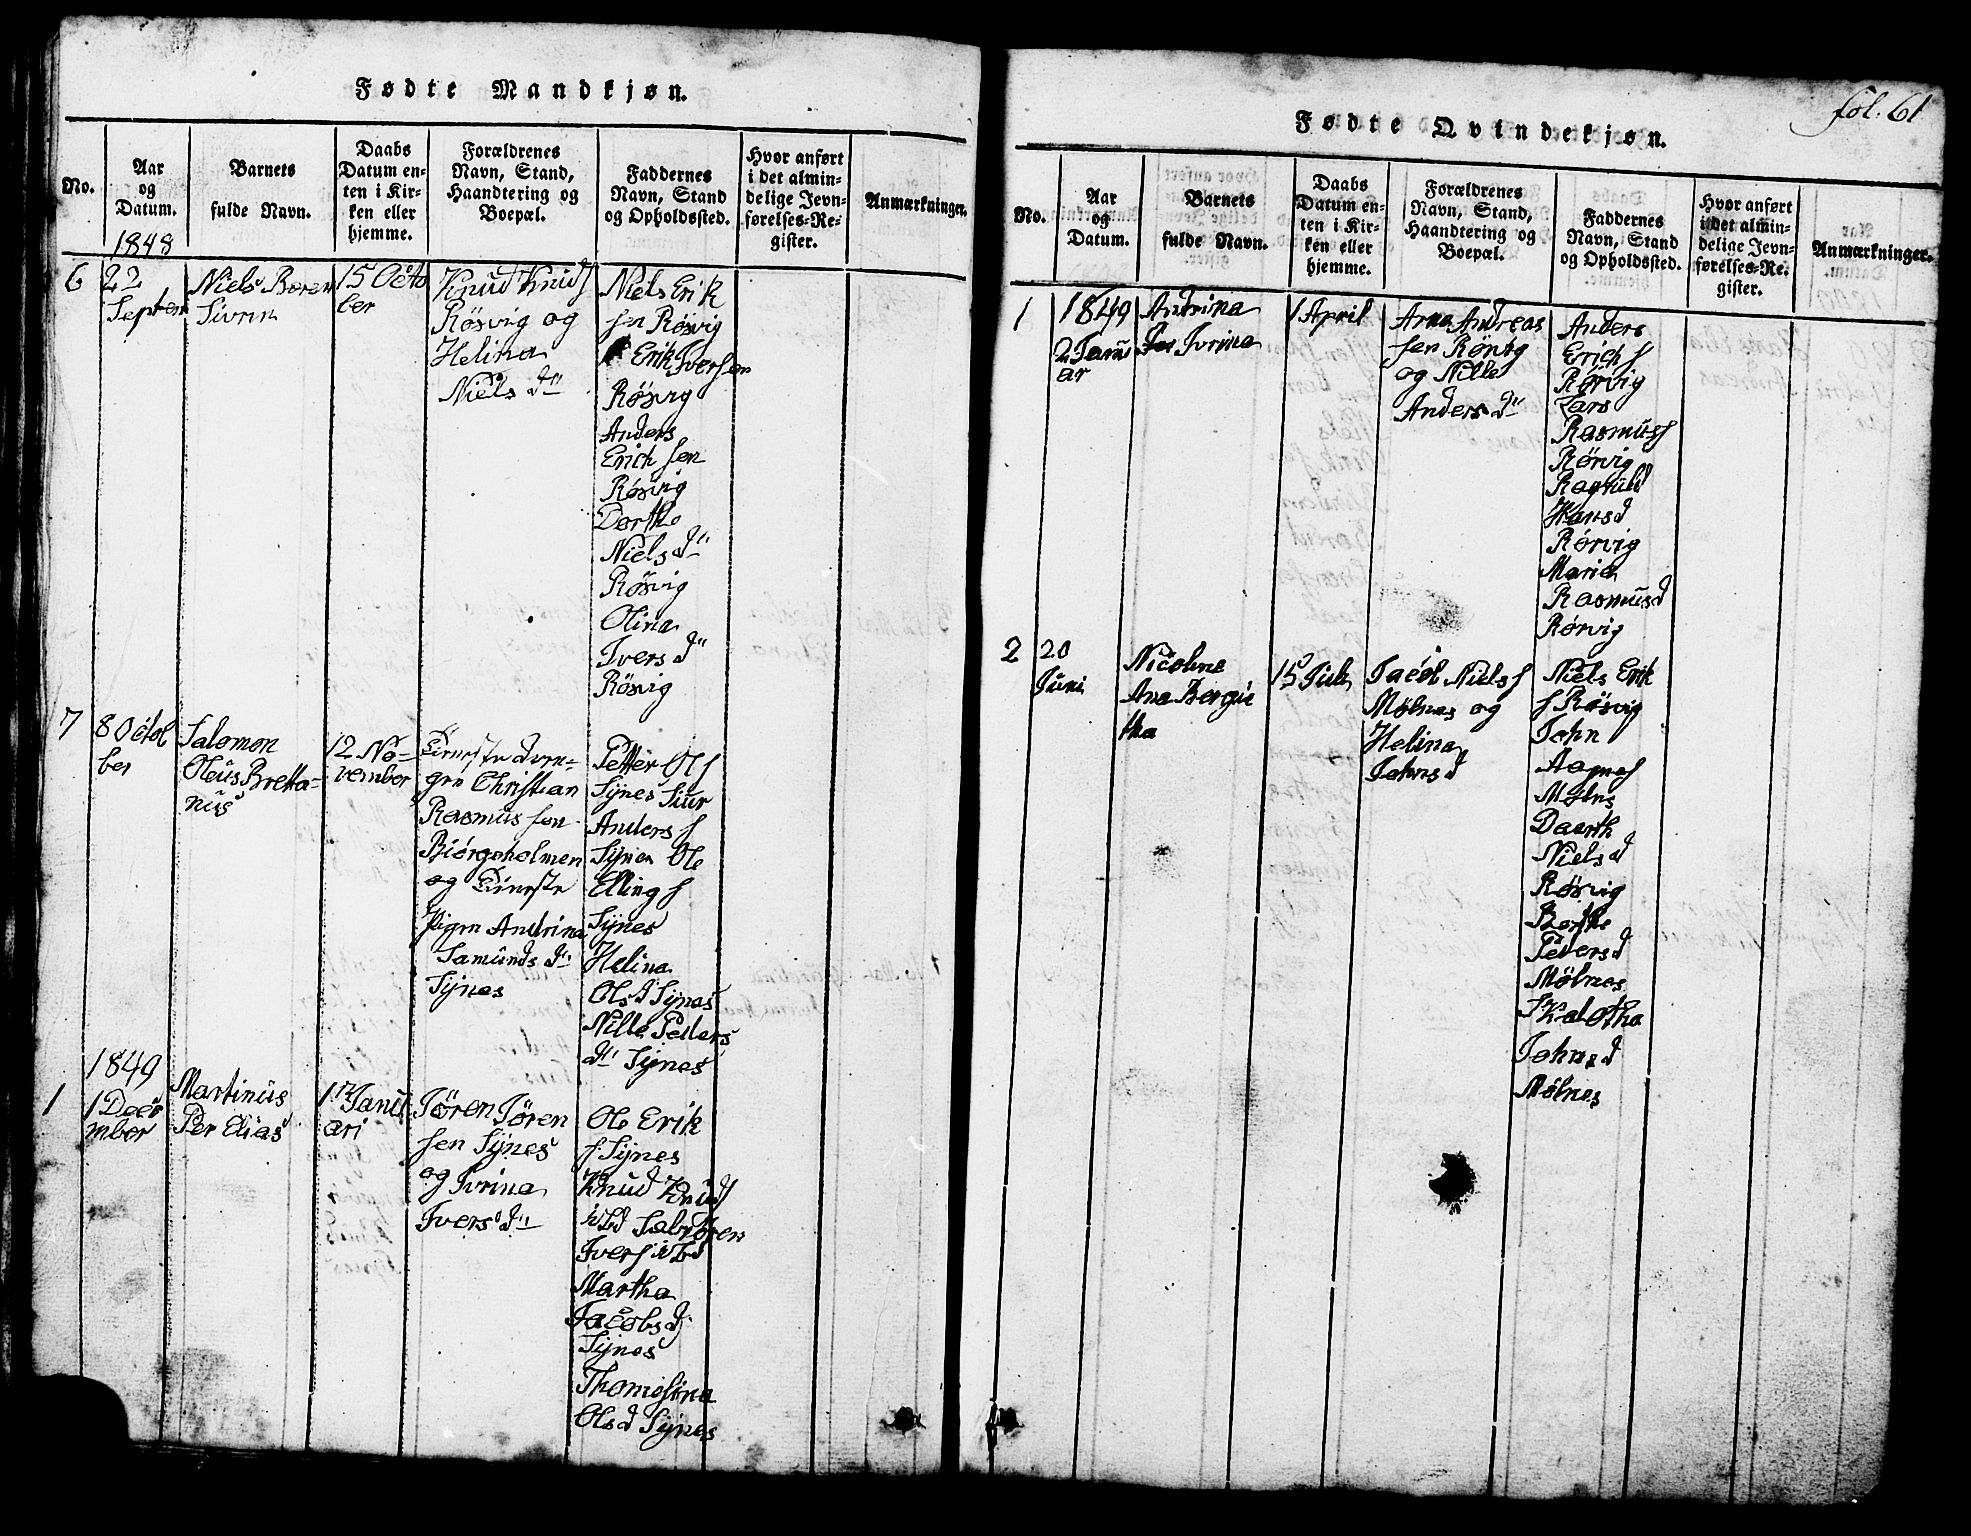 Fødte Mandkjøn.
No.
Aar
og
Datum.
Barnets
fulde Navn.
Daabs
Datum en-
ten i Kir-
ken eller
hjemme.
Forældrenes
Navn, Stand,
Haandtering og
Boepæl.
Faddernes
Navn, Stand
og Opholdssted.
Hvor anført
i det almin-
delige Jevn-
førelses-Re-
gister.
Anmærkninger.
1848
6
22
Septem
Niels Beren
Sivrin
15 Octo
ber
Knud Knuds
Rösvig og
Helina
Niels Dr
Niels Erik
sen Rösvig
Erik Iversen
Rösvig
Anders
Erich sen
Rösvig
Dorthe
Niels Dr
Rösvig
Olina
Ivers Dr
Rösvig
7
8 Octob
ber
Salomon
Oleus Bretta-
nus
12 No-
vember
gre Christian
Rasmus sen
Biörgeholmen
og
Pigen Andrina
Samunds Dr
Synes
Petter Ols
Synes Siur
Anders s
Synes Ole
Elling s
Synes
Helina
Ols d Synes
Nille Peders
Dr Synes
1849
1
1 Dece
mber
Martinus
Per Elias
17 Janu
ari
Sören Sören
sen Synes
og Ivrina
Ivers Dr
Ole Erik
s Synes
Knud Knuds
Ivers
Martha
Jacobs d
Synes
Thomesina
Olsd Synes
fol. 61
Fødte Qvindekjøn.
No.
Aar
og
Datum.
Barnets
fulde Navn.
Daabs
Datum en-
ten i Kir-
ken eller
hjemme.
Forældrenes
Navn, Stand,
Haandtering og
Boepæl.
Faddernes
Navn, Stand
og Opholdssted.
Hvor anført
i det almin-
delige Jevn-
førelses-Re-
gister.
Anmærkninger.
1
1849
2 Janu
ar
Andrina
Ivrina
1 April
Arne Andreas
sen Rörvig
og Nille
Anders Dr
Anders
Erich s
Rörvig
Lars
Rasmus s
Rörvig
Ragnild
Hans d
Rörvig
Maria
Rasmus d
Rörvig
2
20
Juni
Nicoline
Ana Bergit
tha
15 Juli
Jacob Niels s
Mölnes og
Helina
Johns d
Niels Erik
s Rösvig
John
Aages
Mölns
Daarth
Niels d
Rösvig
Berthe
Peders d
Mölnes
Johns d
Mölnes